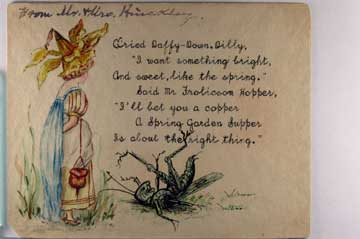 From Mr. & Mrs.
Cried Daffy-Down-Dilly,
"I want something bright,
And sweet, like the spring."
Said Mr Frolicson Hopper,
"I'll bet you a copper
A Spring Garden Supper
Is about the right thing."